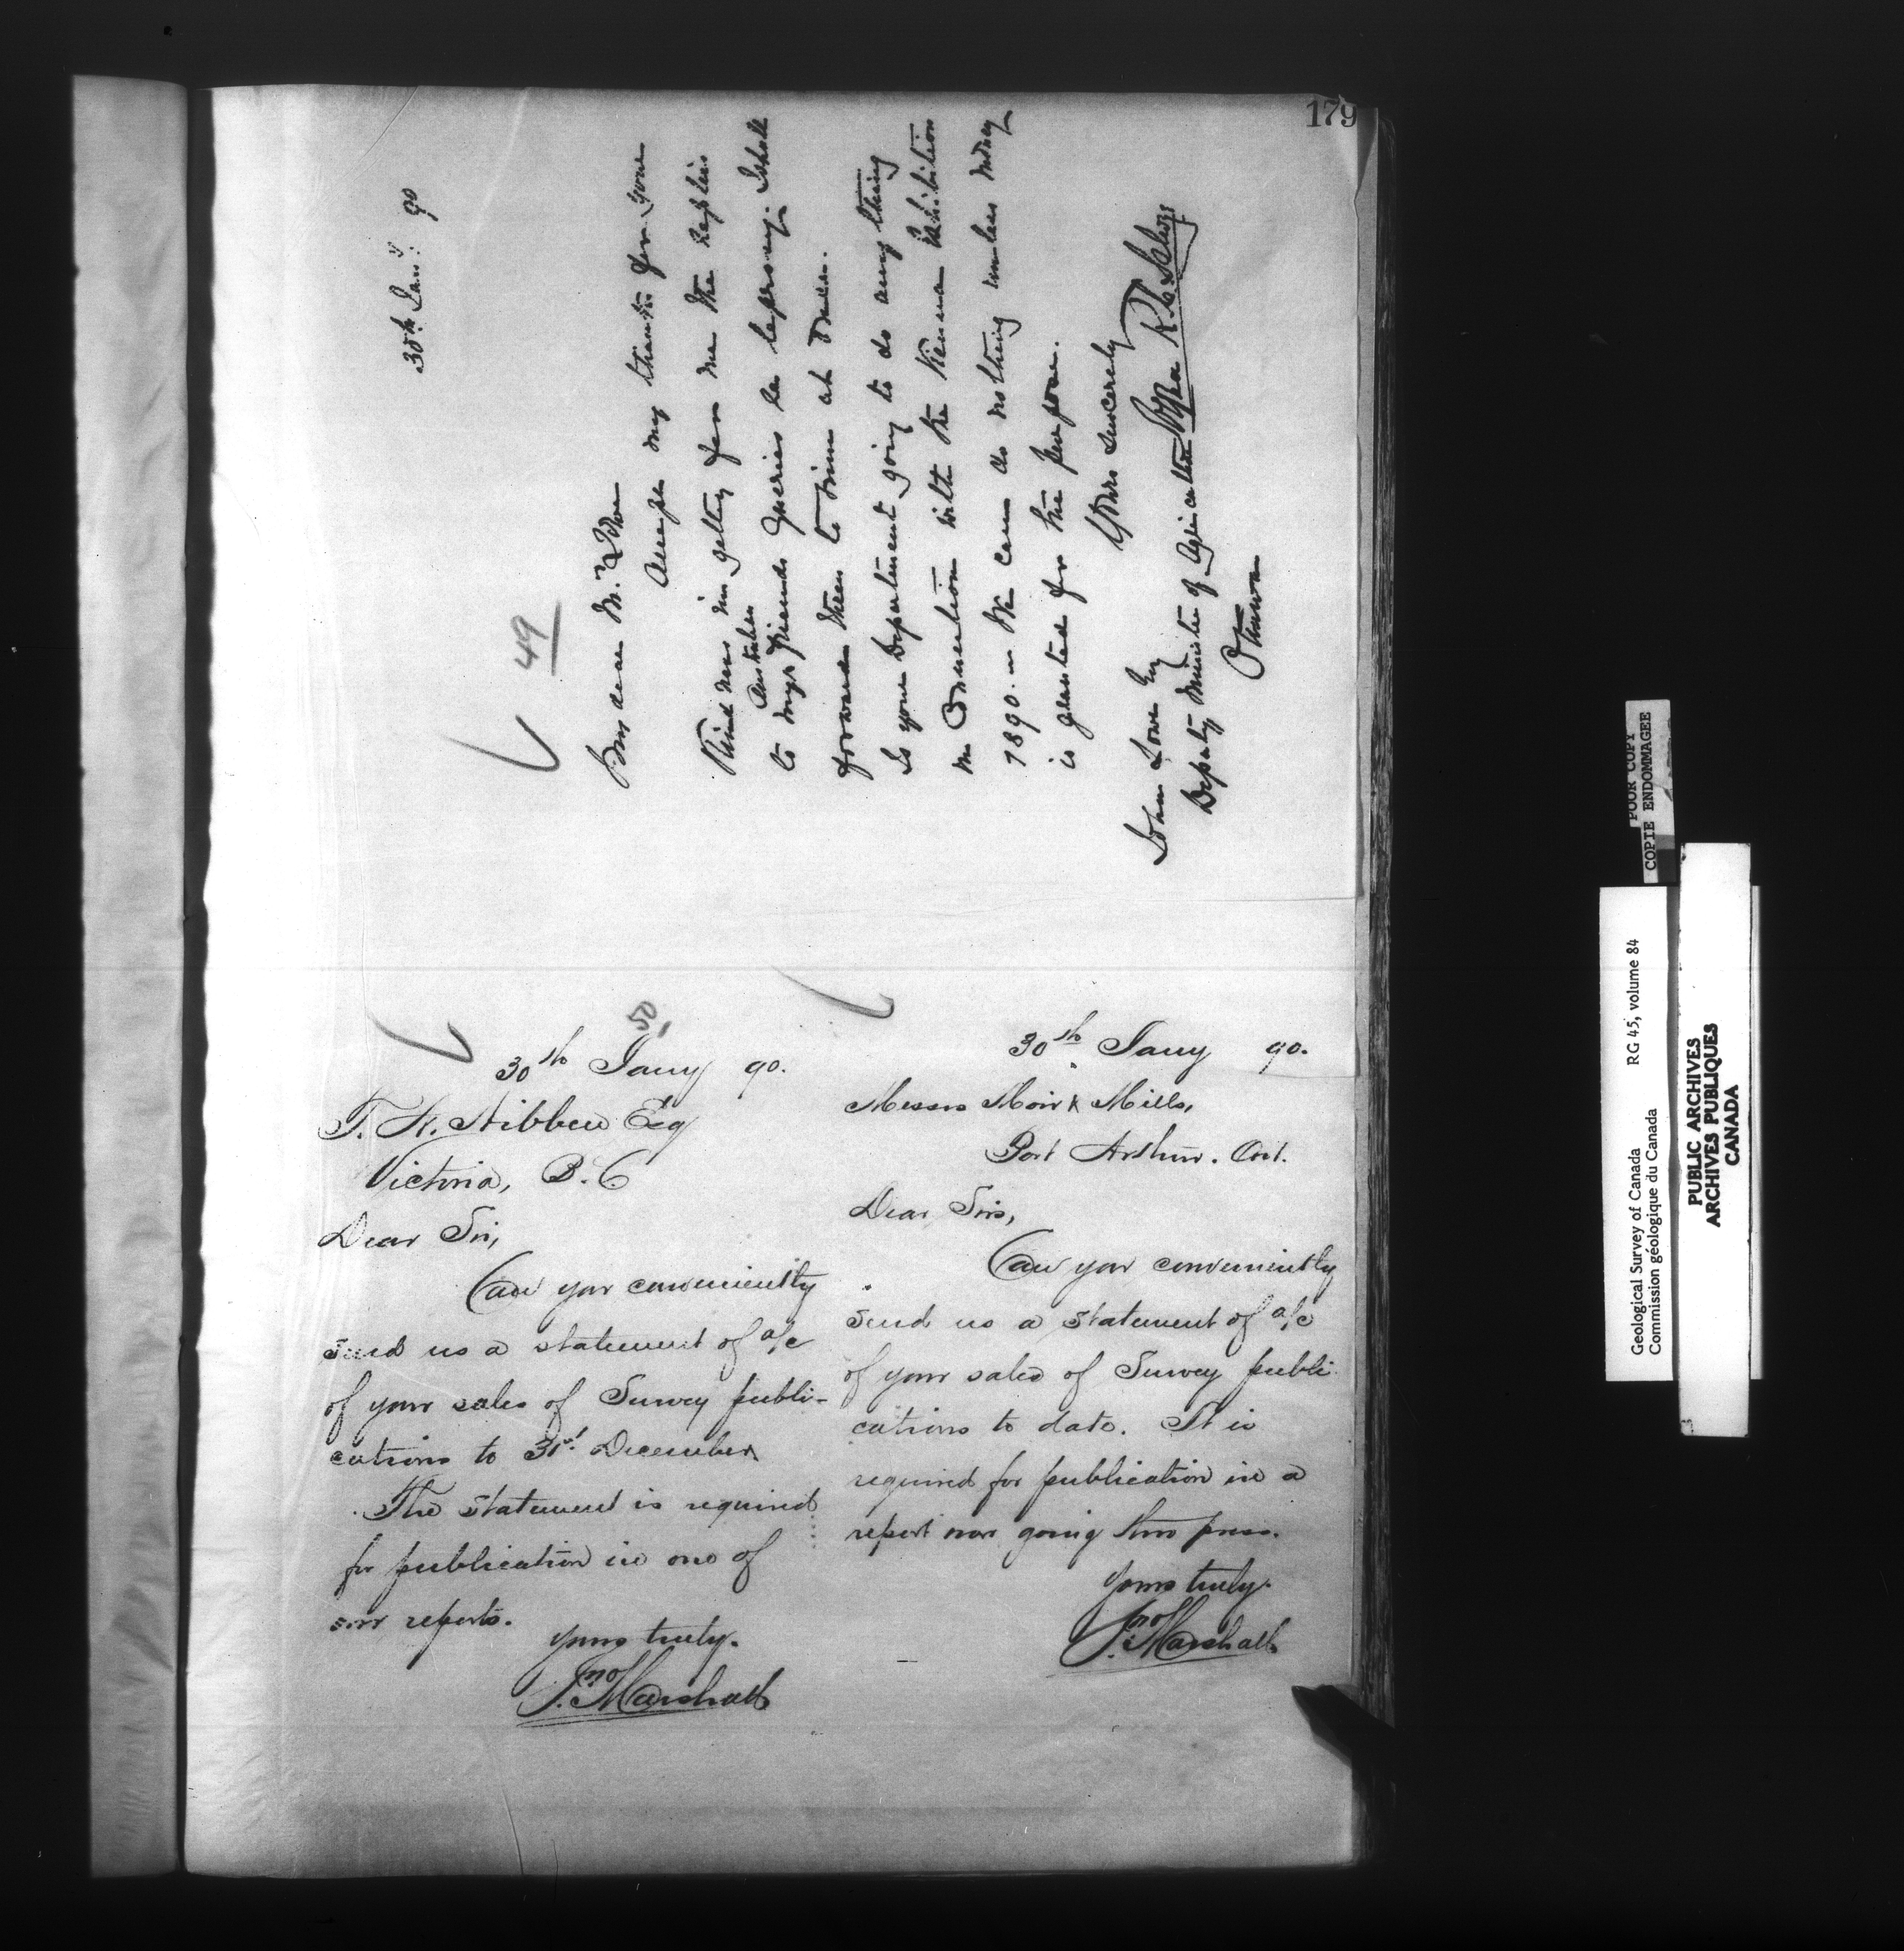 179
30th Jany. 90
49
My dear Mr. Lowe
Accept my thanks for your
kindness in getting for me the replies
Australian
to my friends queries re leprosy. I shall
forward them to him at once.
Is your Department going to do anything
in connection with the Vienna Exhibition
1890. — We can do nothing unless money
is granted for the purpose.
Yours sincerely
John Lowe Esq
Deputy Minister of Agriculture
Ottawa
50,
30th Jany 90.
T. N. Hibben Esq
Victoria, B.C.
Dear Sir,
Can you conveniently
send us a statement of a/c
of your sales of Survey publi-
cations to 31st December.
The statement is required
for publication in one of
our reports.
Yours truly.
Jno Marshall
30th Jany 90.
Messrs Moir & Mills,
Port Arthur. Ont.
Dear Sirs,
Can you conveniently
send us a statement of a/c
of your sales of Survey publi-
cations to date. It is
required for publication in a
report now going thro press.
Yours truly.
Jno Marshall
POOR COPY
COPIE ENDOMMAGEE
Geological Survey of Canada RG 45, volume 84
Commission géologique du Canada
PUBLIC ARCHIVES
ARCHIVES PUBLIQUES
CANADA